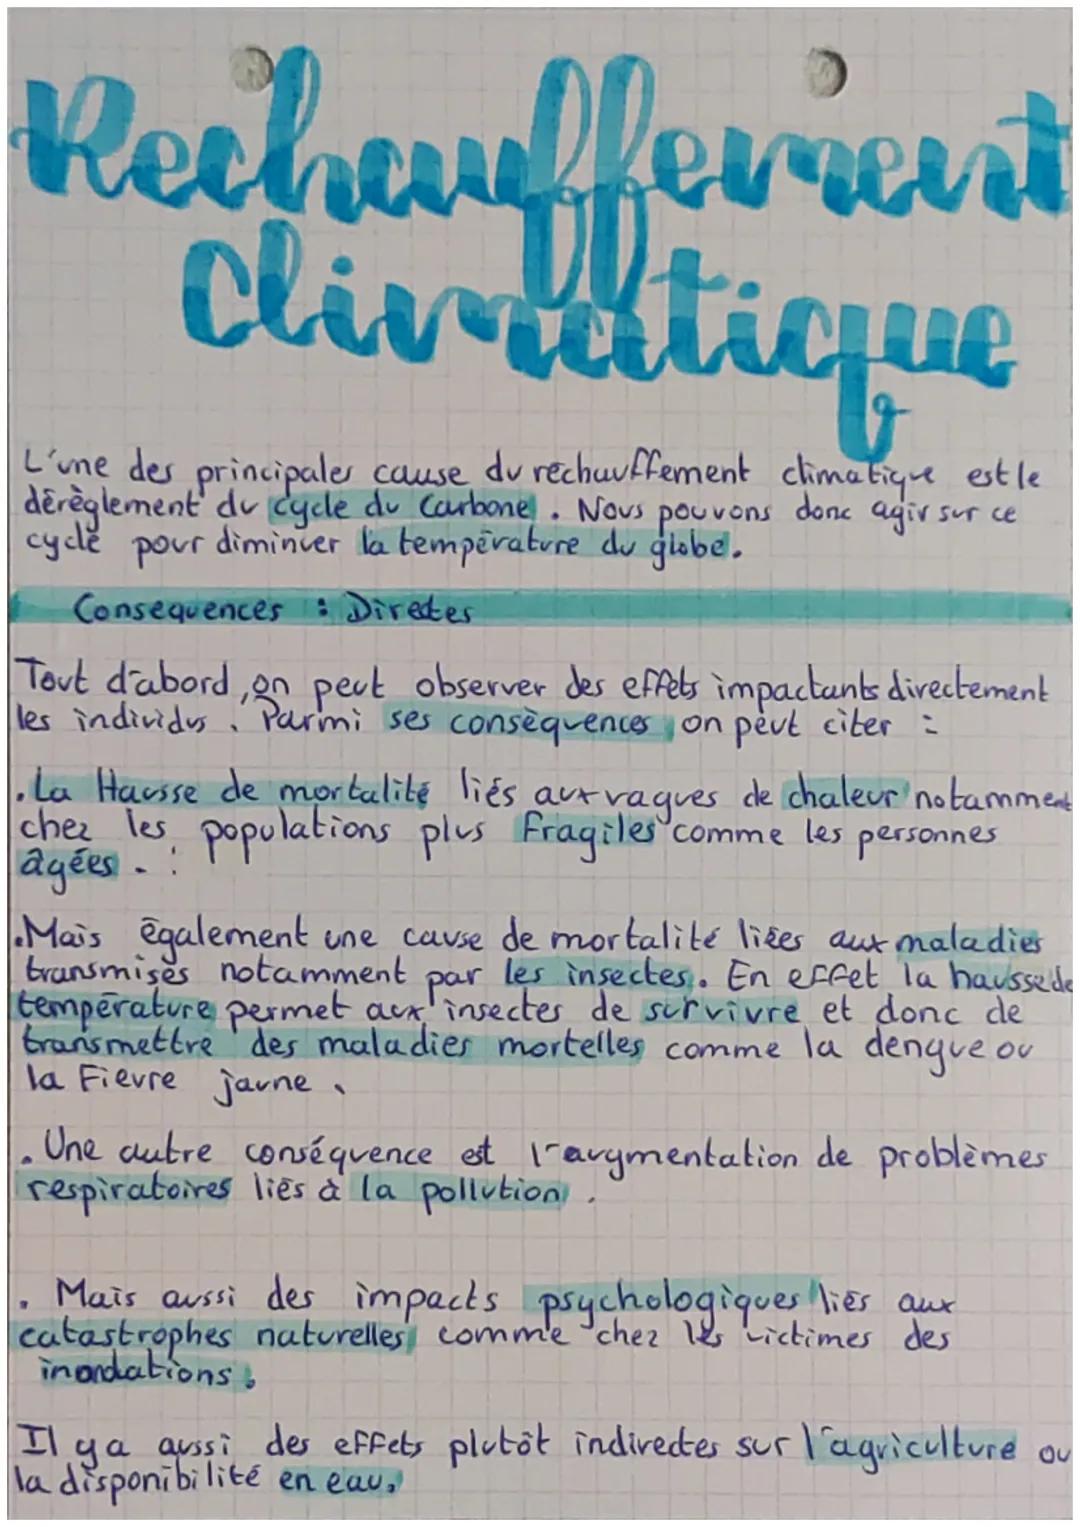 Rechauffement
Climatique
L'une des principales cause du réchauffement climatique est le
dérèglement du cycle du Carbone. Nous pouvons donc agir sur ce
cycle pour diminuer la température du globe.
Consequences : Directes
Tout d'abord, on peut observer des effets impactants directement
les individus. Parmi ses conséquences on peut citer :
. La Hausse de mortalité liés aux vagues de chaleur notamment
chez les populations plus Fragiles comme les personnes
âgées . :
. Mais également une cause de mortalité liées aux maladies
transmises notamment par les insectes. En effet la hausse de
température permet aux insectes de survivre et donc de
transmettre des maladies mortelles comme la dengue ou
la Fievre jaune.
. Une autre conséquence est l'augmentation de problèmes
respiratoires liés à la pollution.
. Mais aussi des impacts psychologiques liés aux
catastrophes naturelles comme chez les victimes des
inondations.
Il y a aussi des effets plutôt indirectes sur l'agriculture ou
la disponibilité en eau.